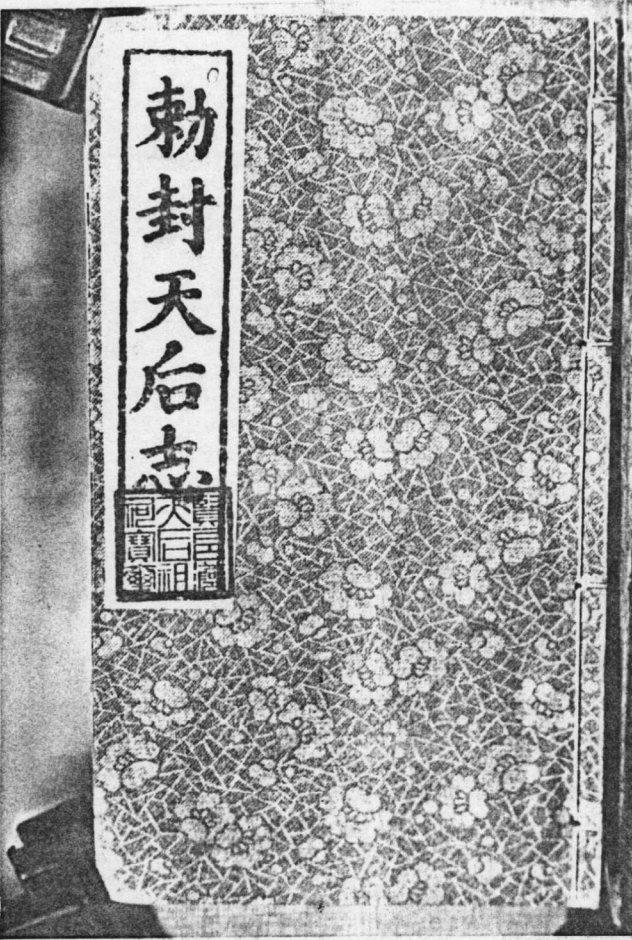 勅封天后志